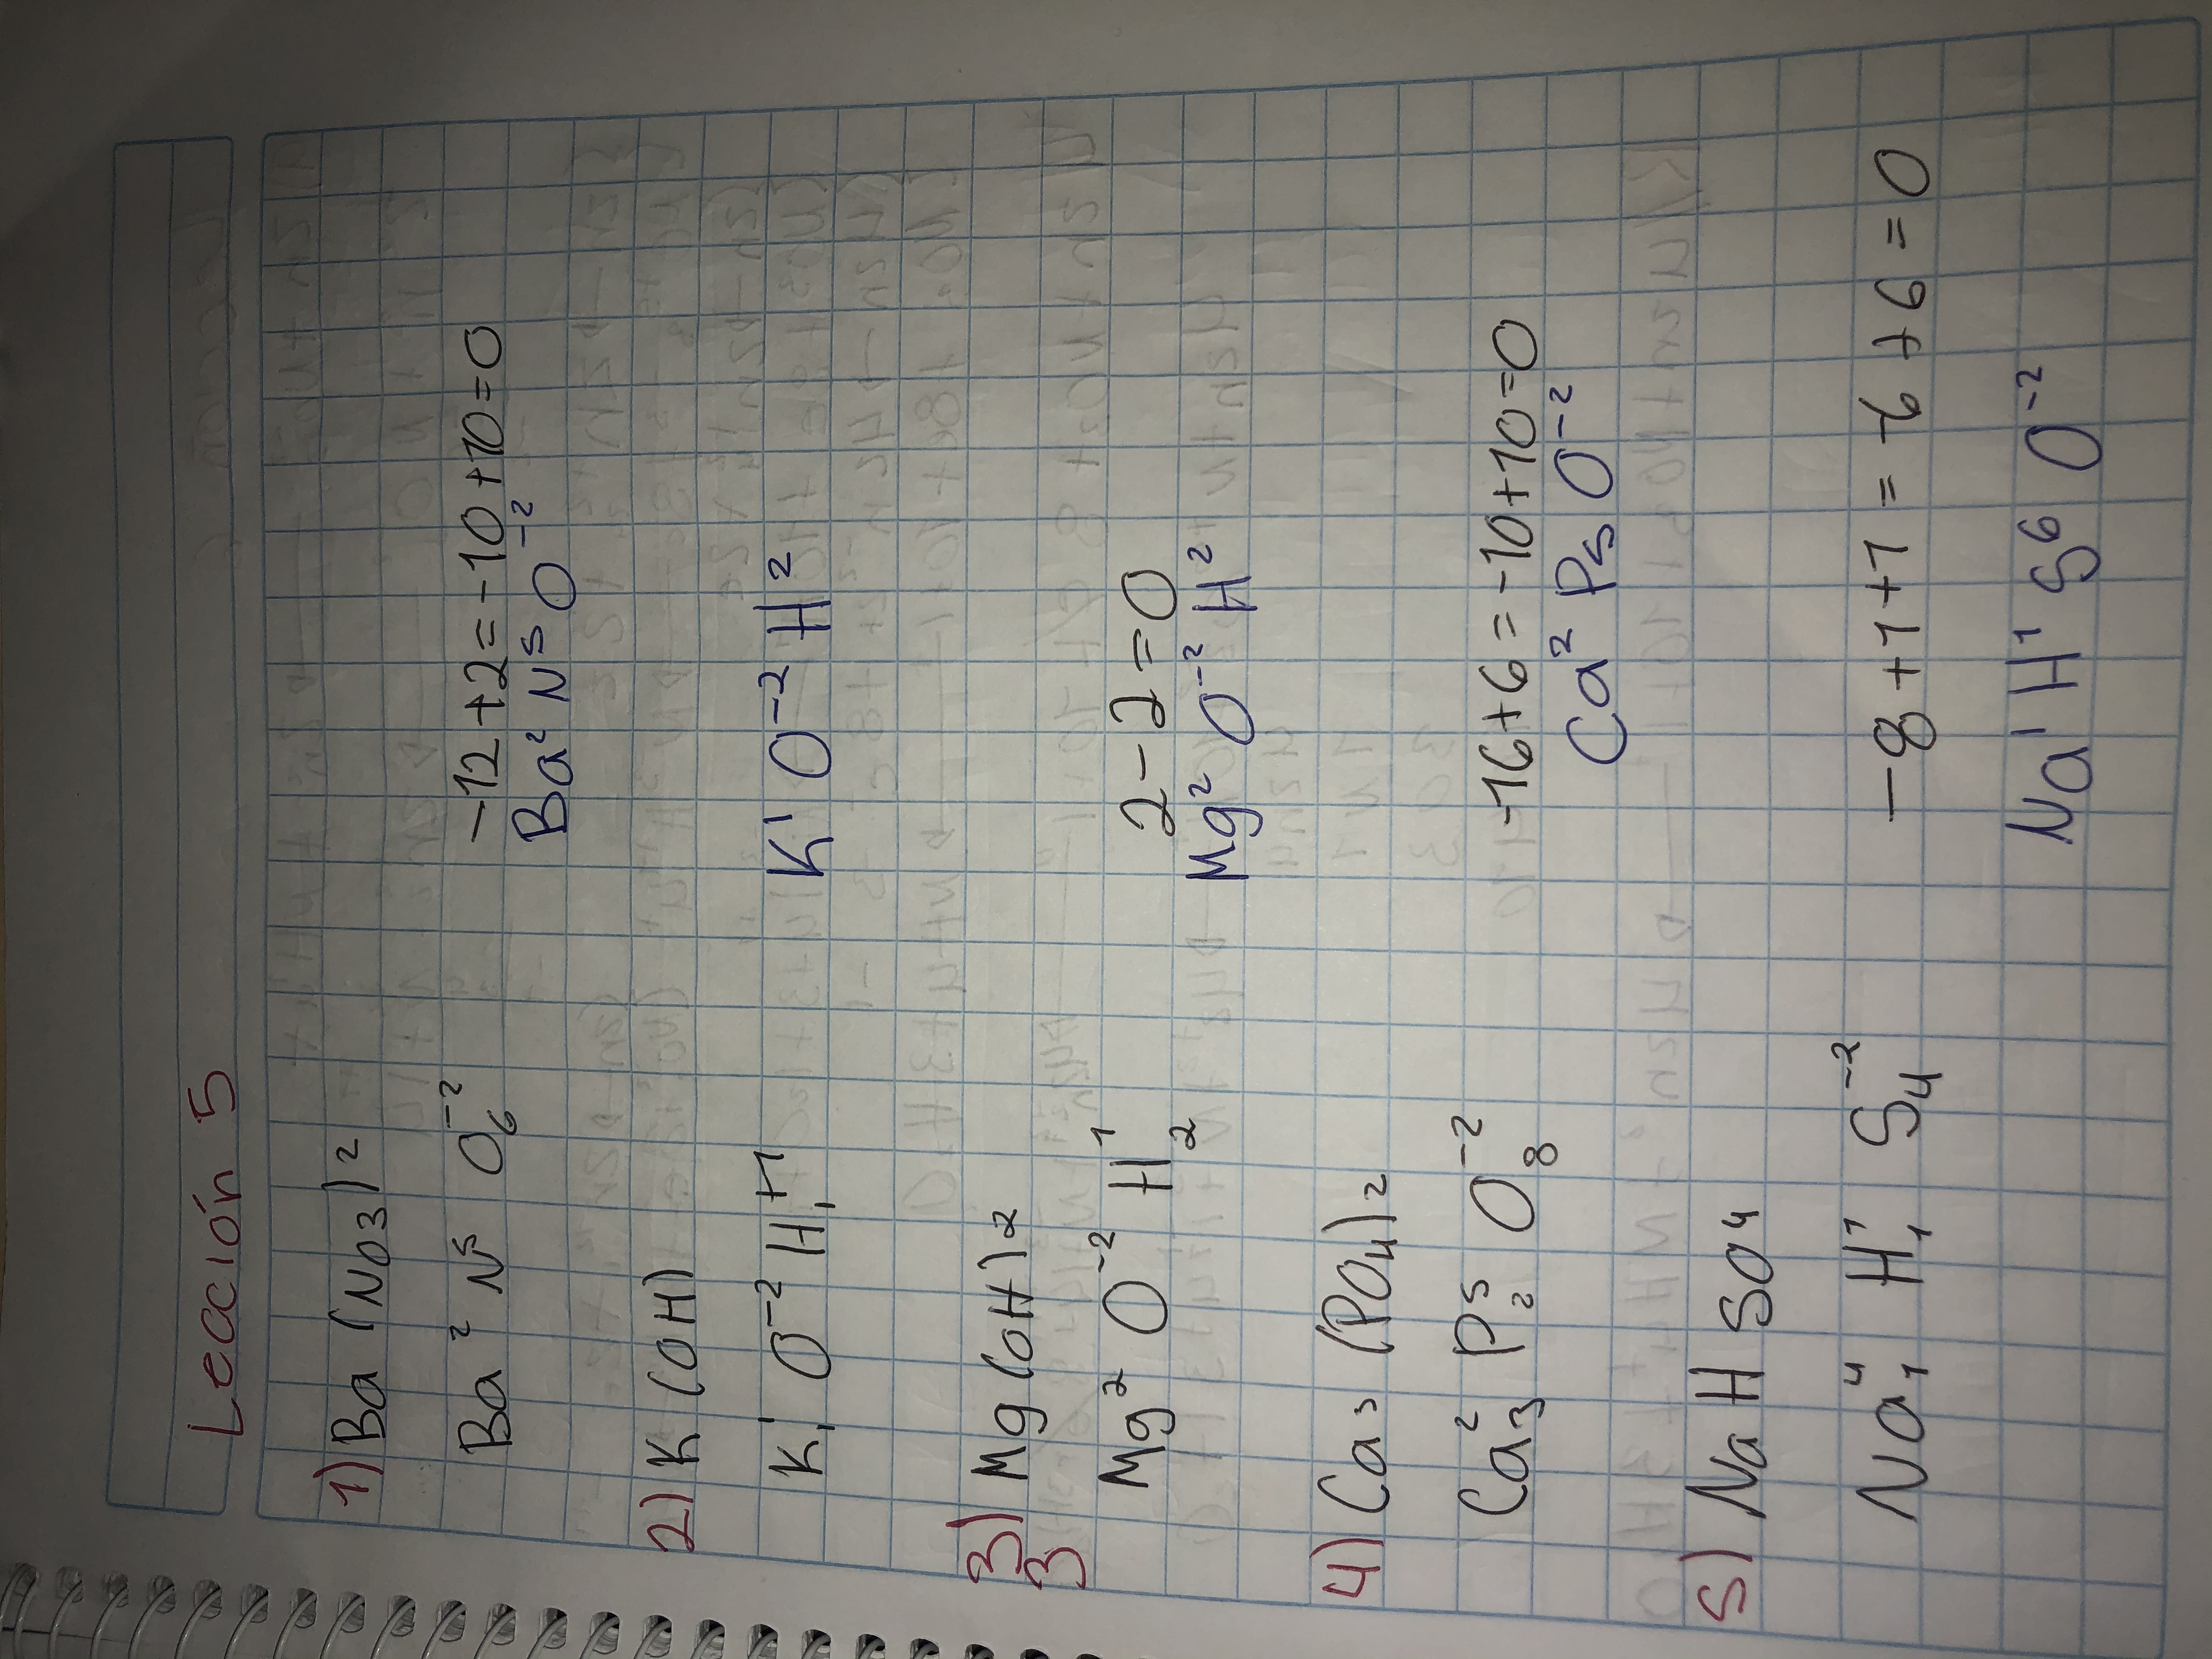 Lección 5
1) Ba (NO3)2
Ba² N⁵ O₆⁻² -12+2=-10+10=0
Ba² N⁵ O⁻²
2) K (OH)
K₁¹ O⁻² H₁⁺¹ K¹ O⁻² H²
3) Mg (OH)2
3
Mg² O⁻² H₂¹ 2-2=0
Mg² O⁻² H²
4) Ca3 (PO4)2
Ca₃² P₂⁵ O₈⁻² -16+6=-10+10=0
Ca² P5 O⁻²
5) Na H SO4
Na₁⁴ H₁¹ S₄⁻² -8+1+1= -6 +6=0
Na¹ H¹ S⁶ O⁻²